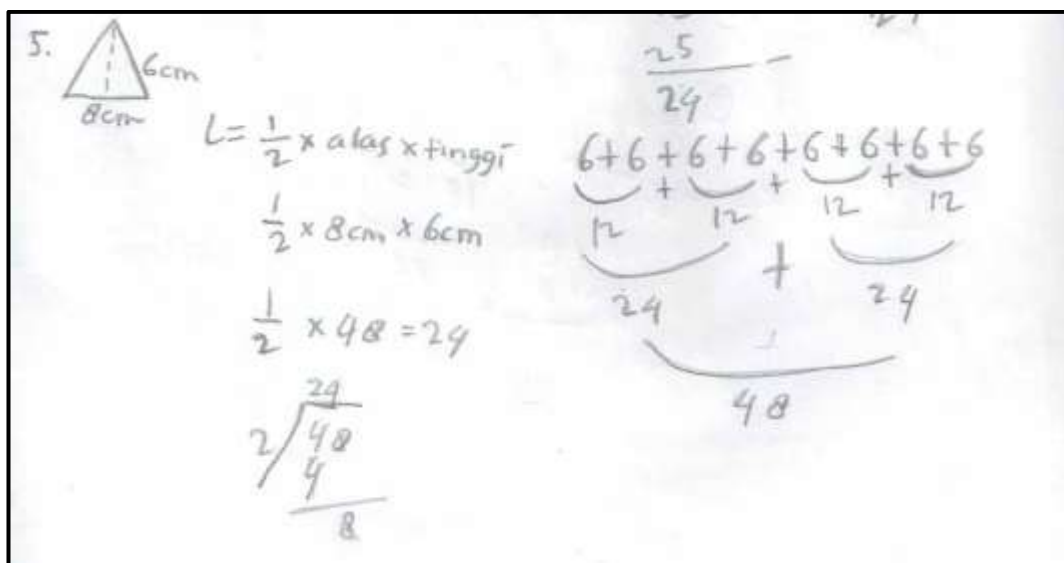 5.
6cm
8cm
L = 1/2 x alas x tinggi
1/2 x 8cm x 6cm
1/2 x 48 = 24
24
2 / 48
4
8
25
24 -
6+6+6+6+6+6+6+6
12 + 12 + 12 + 12
24 + 24
48